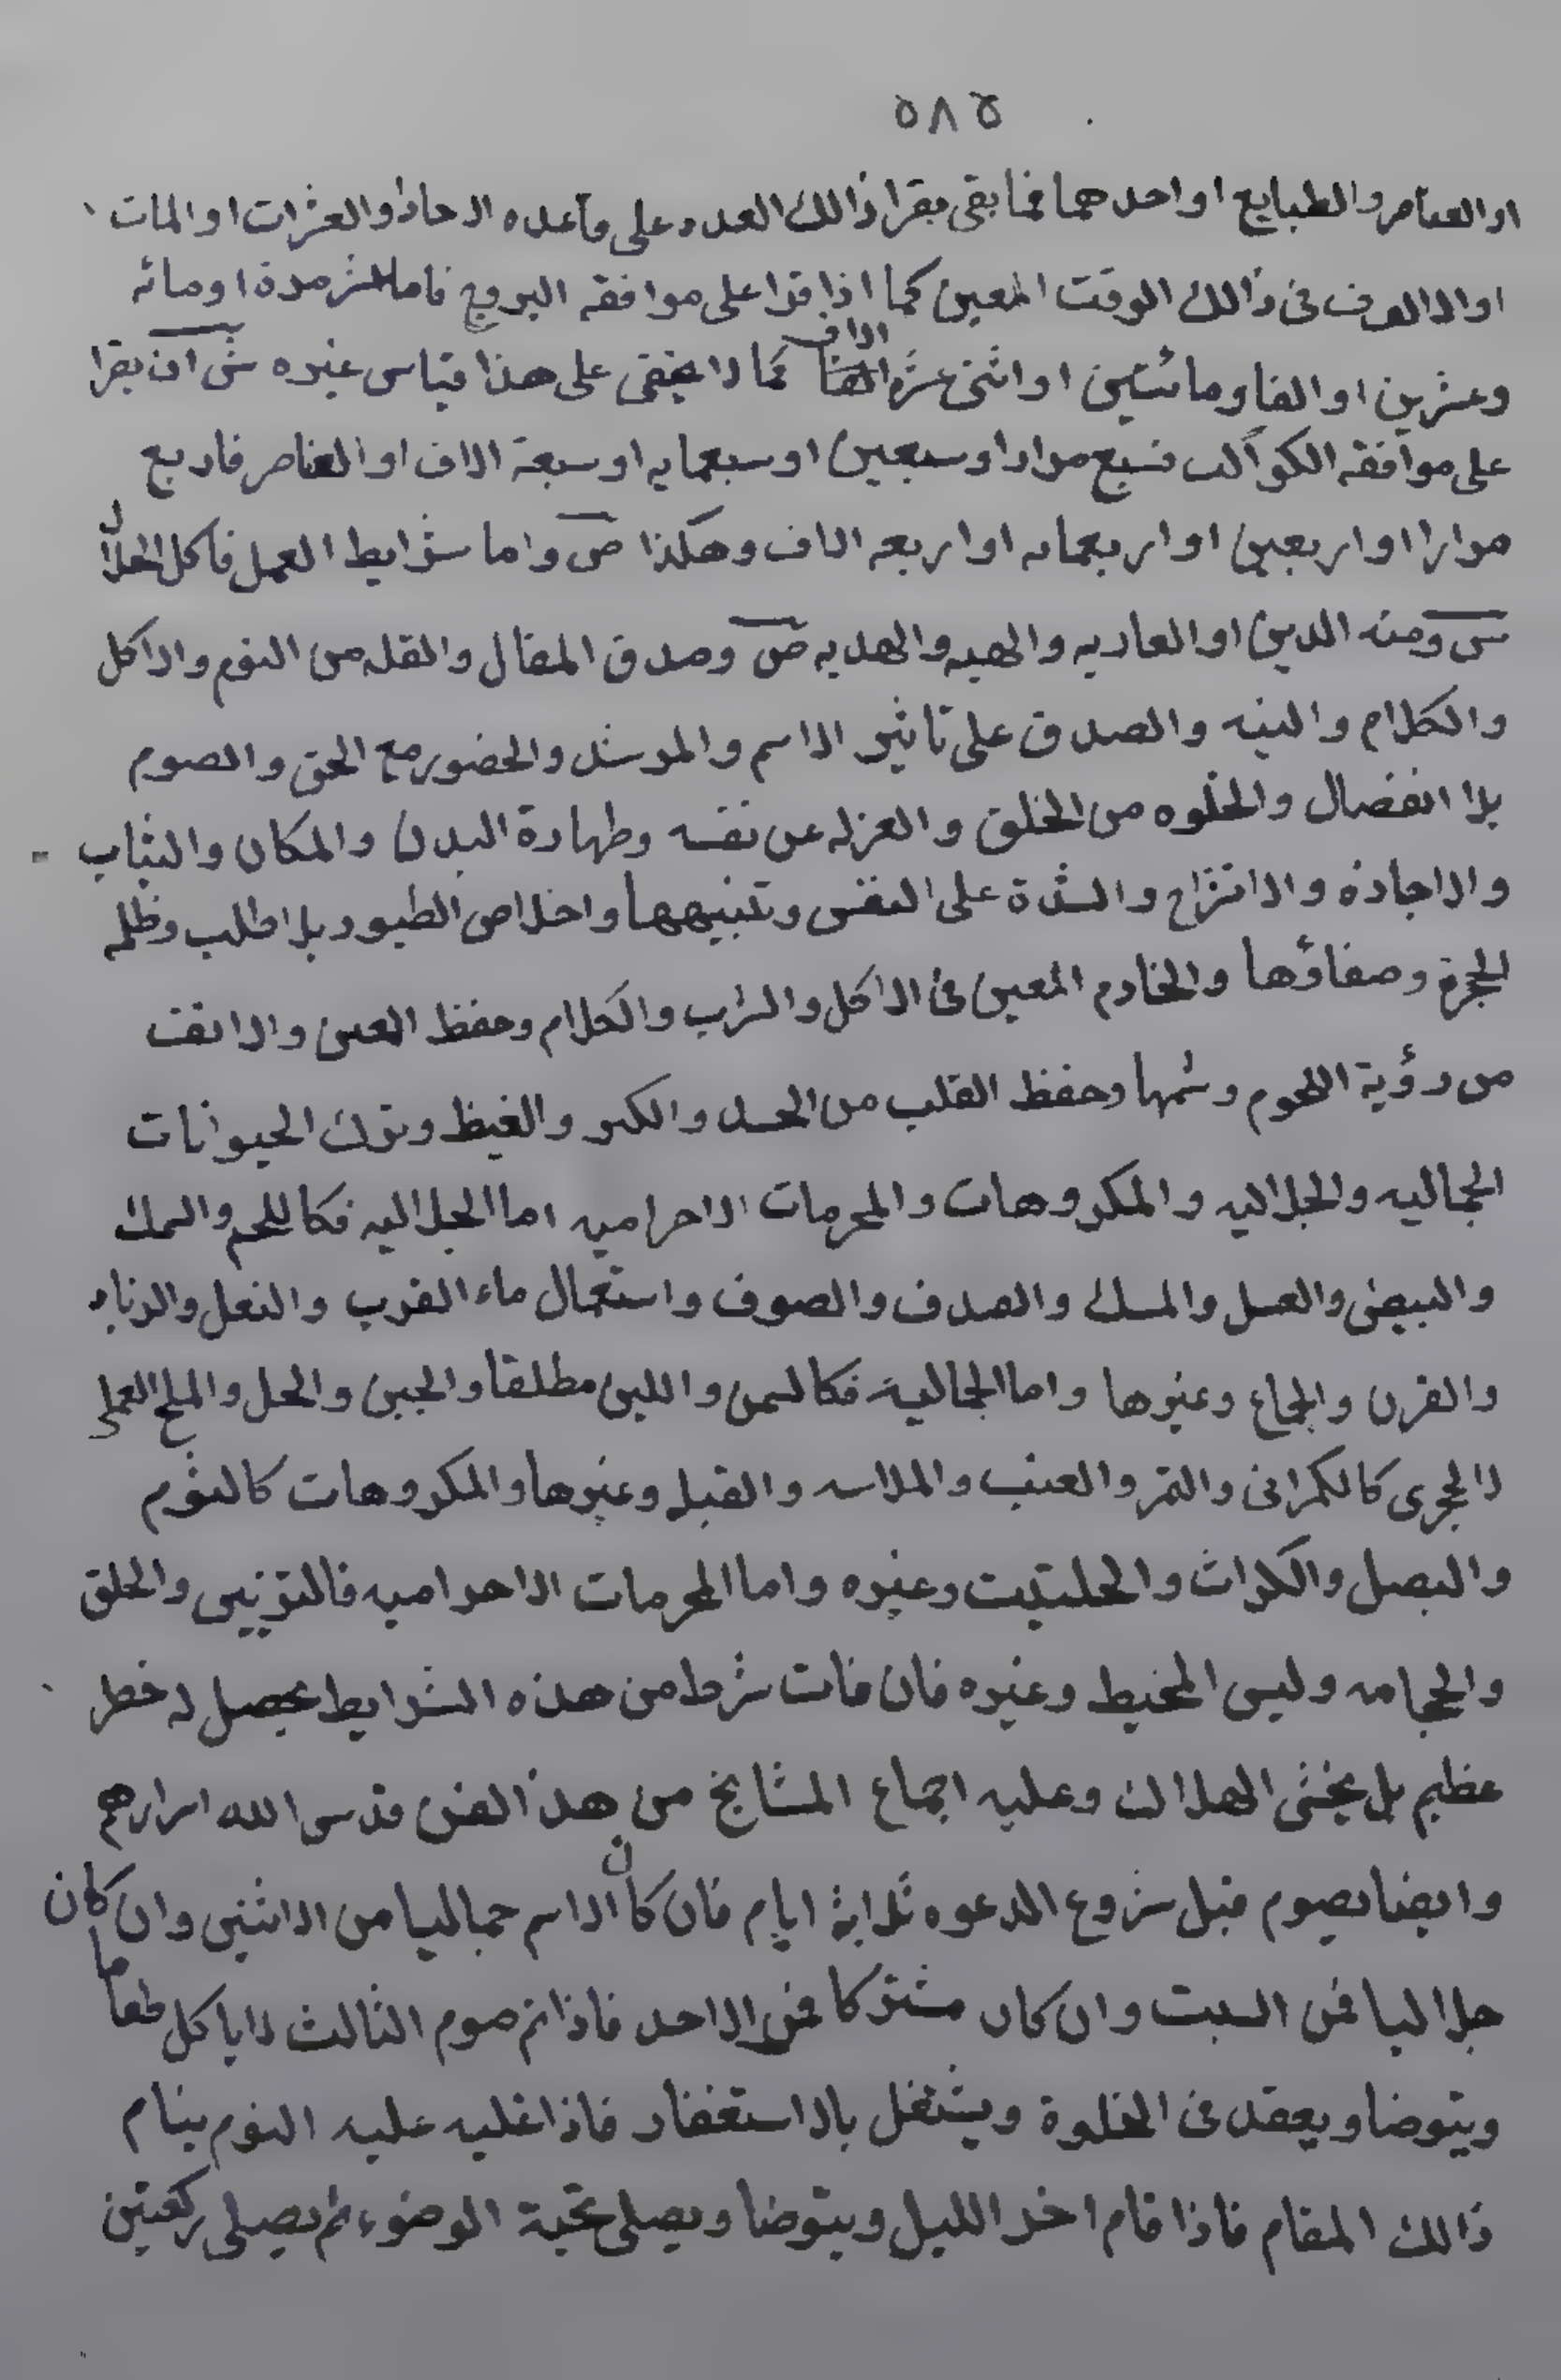 ٥٨٥
او العناصر والطبايع او احدهما فما بقى يقرا ذالك العدد على قاعده الاحاد او العشرات او المات
او الالوف فى ذالك الوقت المعين كما اذا قرا على موافقه البروج فاما اثنى عشر مرة او مائه
وعشرين او الفا ومائتين او اثنى عشر الاف كما لا يخفى على هذا قياس غيره ش ان يقرا
على موافقه الكواكب فسبع مرار او سبعين او سبعمايه او سبعة الاف او العناصر فاربع
مرارا او اربعين او اربعمايه او اربعه الاف وهكذا ص واما شرايط العمل فاكل الحلال
ش ومنه الدين او العاريه والهبه والهديه ص وصدق المقال والقله من النوم والاكل
والكلام والنيه والصدق على تاثير الاسم والمرشد والحضور مع الحق والصوم
بلا انفصال والخلوه من الخلق والعزله عن نفسه وطهارة البدن والمكان والثياب
والاجازه والانتزاع والشدة على النفس وتنبيهها واخلاص الطيور بلا طلب وظلمه
الحجرة وصفاؤها والخادم المعين فى الاكل والشراب والكلام وحفظ العين والانف
من رؤية اللحوم وشمها وحفظ القلب من الحسد والكبر والغيظ وترك الحيوانات
الجماليه والجلاليه والمكروهات والمحرمات الاحراميه اما الجلاليه فكاللحم والسمك
والبيض والعسل والمسك والصدف والصوف واستعمال ماء القرب والنعل والزناد
والقرن والجماع وغيرها واما الجمالية فكالسمن واللبن مطلقا والجبن والخل والملح العملى
لا الحجرى كالكمرانى والتمر والعنب والملاسه والقبله وغيرها والمكروهات كالثوم
والبصل والكراث والحلتيت وغيره واما المحرمات الاحراميه فالتزيين والحلق
والحجامه ولبس المخيط وغيره فان فات شرط من هذه الشرايط يحصل له خطر
عظيم بل يخشى الهلاك وعليه اجماع المشايخ من هذ الفن قدس الله اسرارهم
وايضا يصوم قبل شروع الدعوه ثلاثة ايام فان كان الاسم جماليا من الاثنين وان كان
جلاليا فمن السبت وان كان مشتركا فمن الاحد فاذا تم صوم الثالث لا ياكل طعاما
ويتوضا ويعقد فى الخلوة ويشتغل بالاستغفار فاذا غلبه عليه النوم ينام
ذالك المقام فاذا قام اخر الليل ويتوضا ويصلى تحية الوضوء ثم يصلى ركعتين